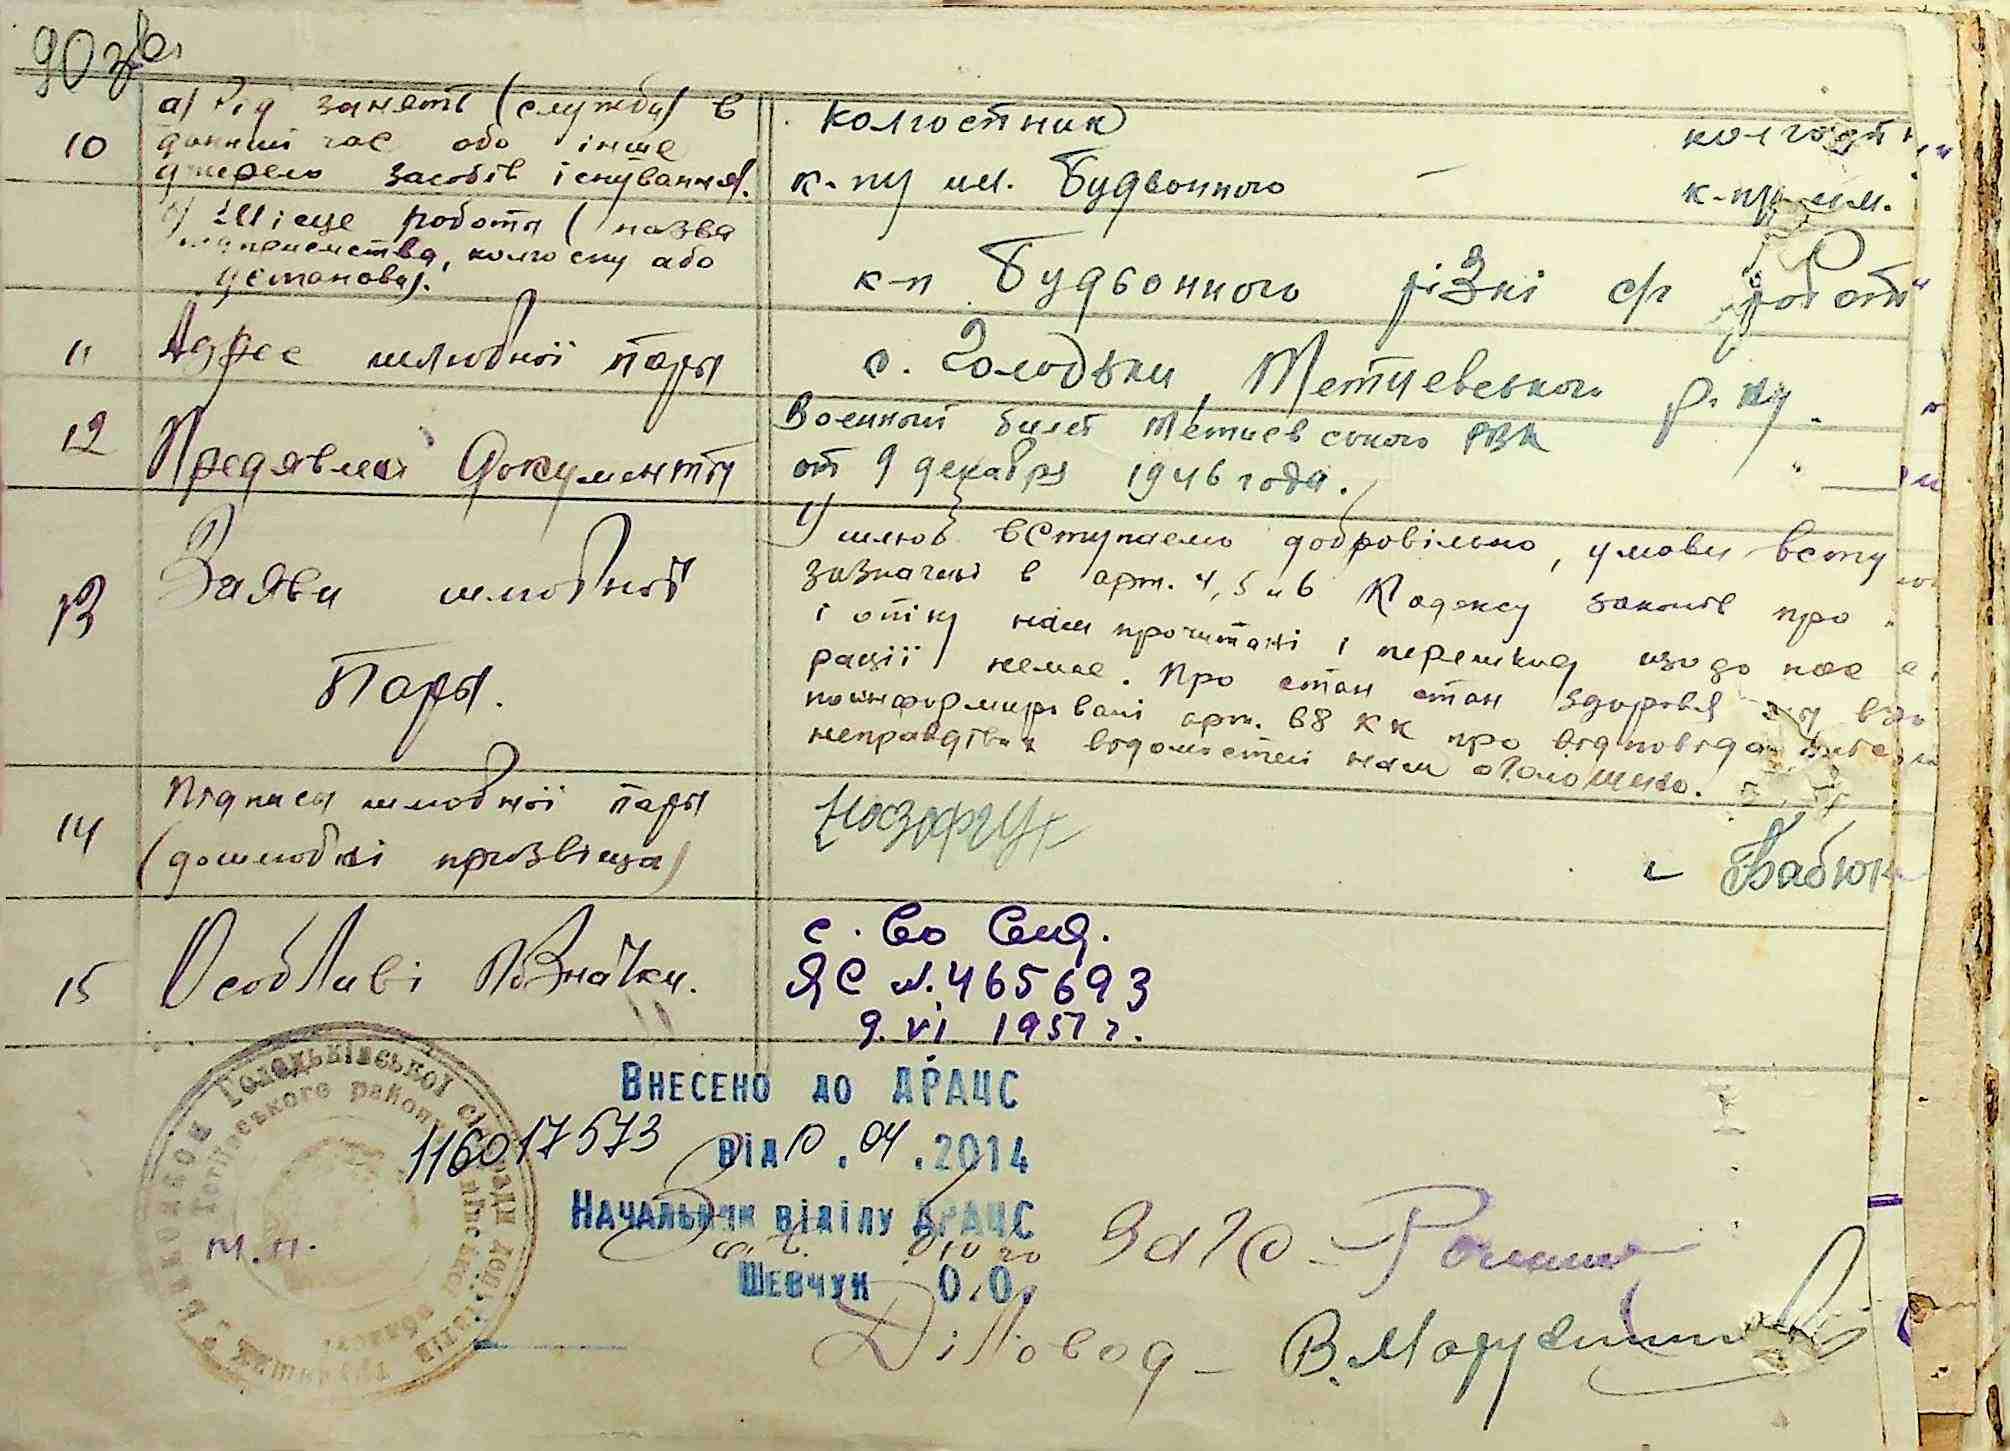 90 зв.
10 а) Рід занять (служби) в
данний час або інше
джерело засобів існування).
колгостник
колгостн
к-пу им. Будьонного
к-пу им.
б) Місце роботи (назва
підприємства, колгоспу або
установи).
к-п Будьонного різні с/г роботи
11 Адрес шлюбної пари
с. Голодьки, Тетиевського р-ну
12 Предявлені документи
Военный билет Тетиевського РВК
от 9 декабря 1946 года.
13 Заяви шлюбної
Пари.
У шлюб вступаємо добровільно, умови всту
зазначені в арт. 4, 5 и 6 Кодексу законів про
і опіку нам прочитані і перешкод щодо нас
рації немає. Про стан стан здоровя
поинформировані арт. 88 КК про відповіда
неправдівих відомостей нам оголошено.
14 Підписи шлюбної пари
(дошлюбні призвіща)
Назарук
Бабюк
15 Особливі Позначки.
с. Во Снд.
ЯС № 465693
9. VI 1951 г.
Внесено до ДРАЦС
116017573 від 10.04.2014
Начальник відділу ДРАЦС
Шевчук О.О.
Голодьківської
Тетіївського району
м.п.
Загс -
Діловод - В.